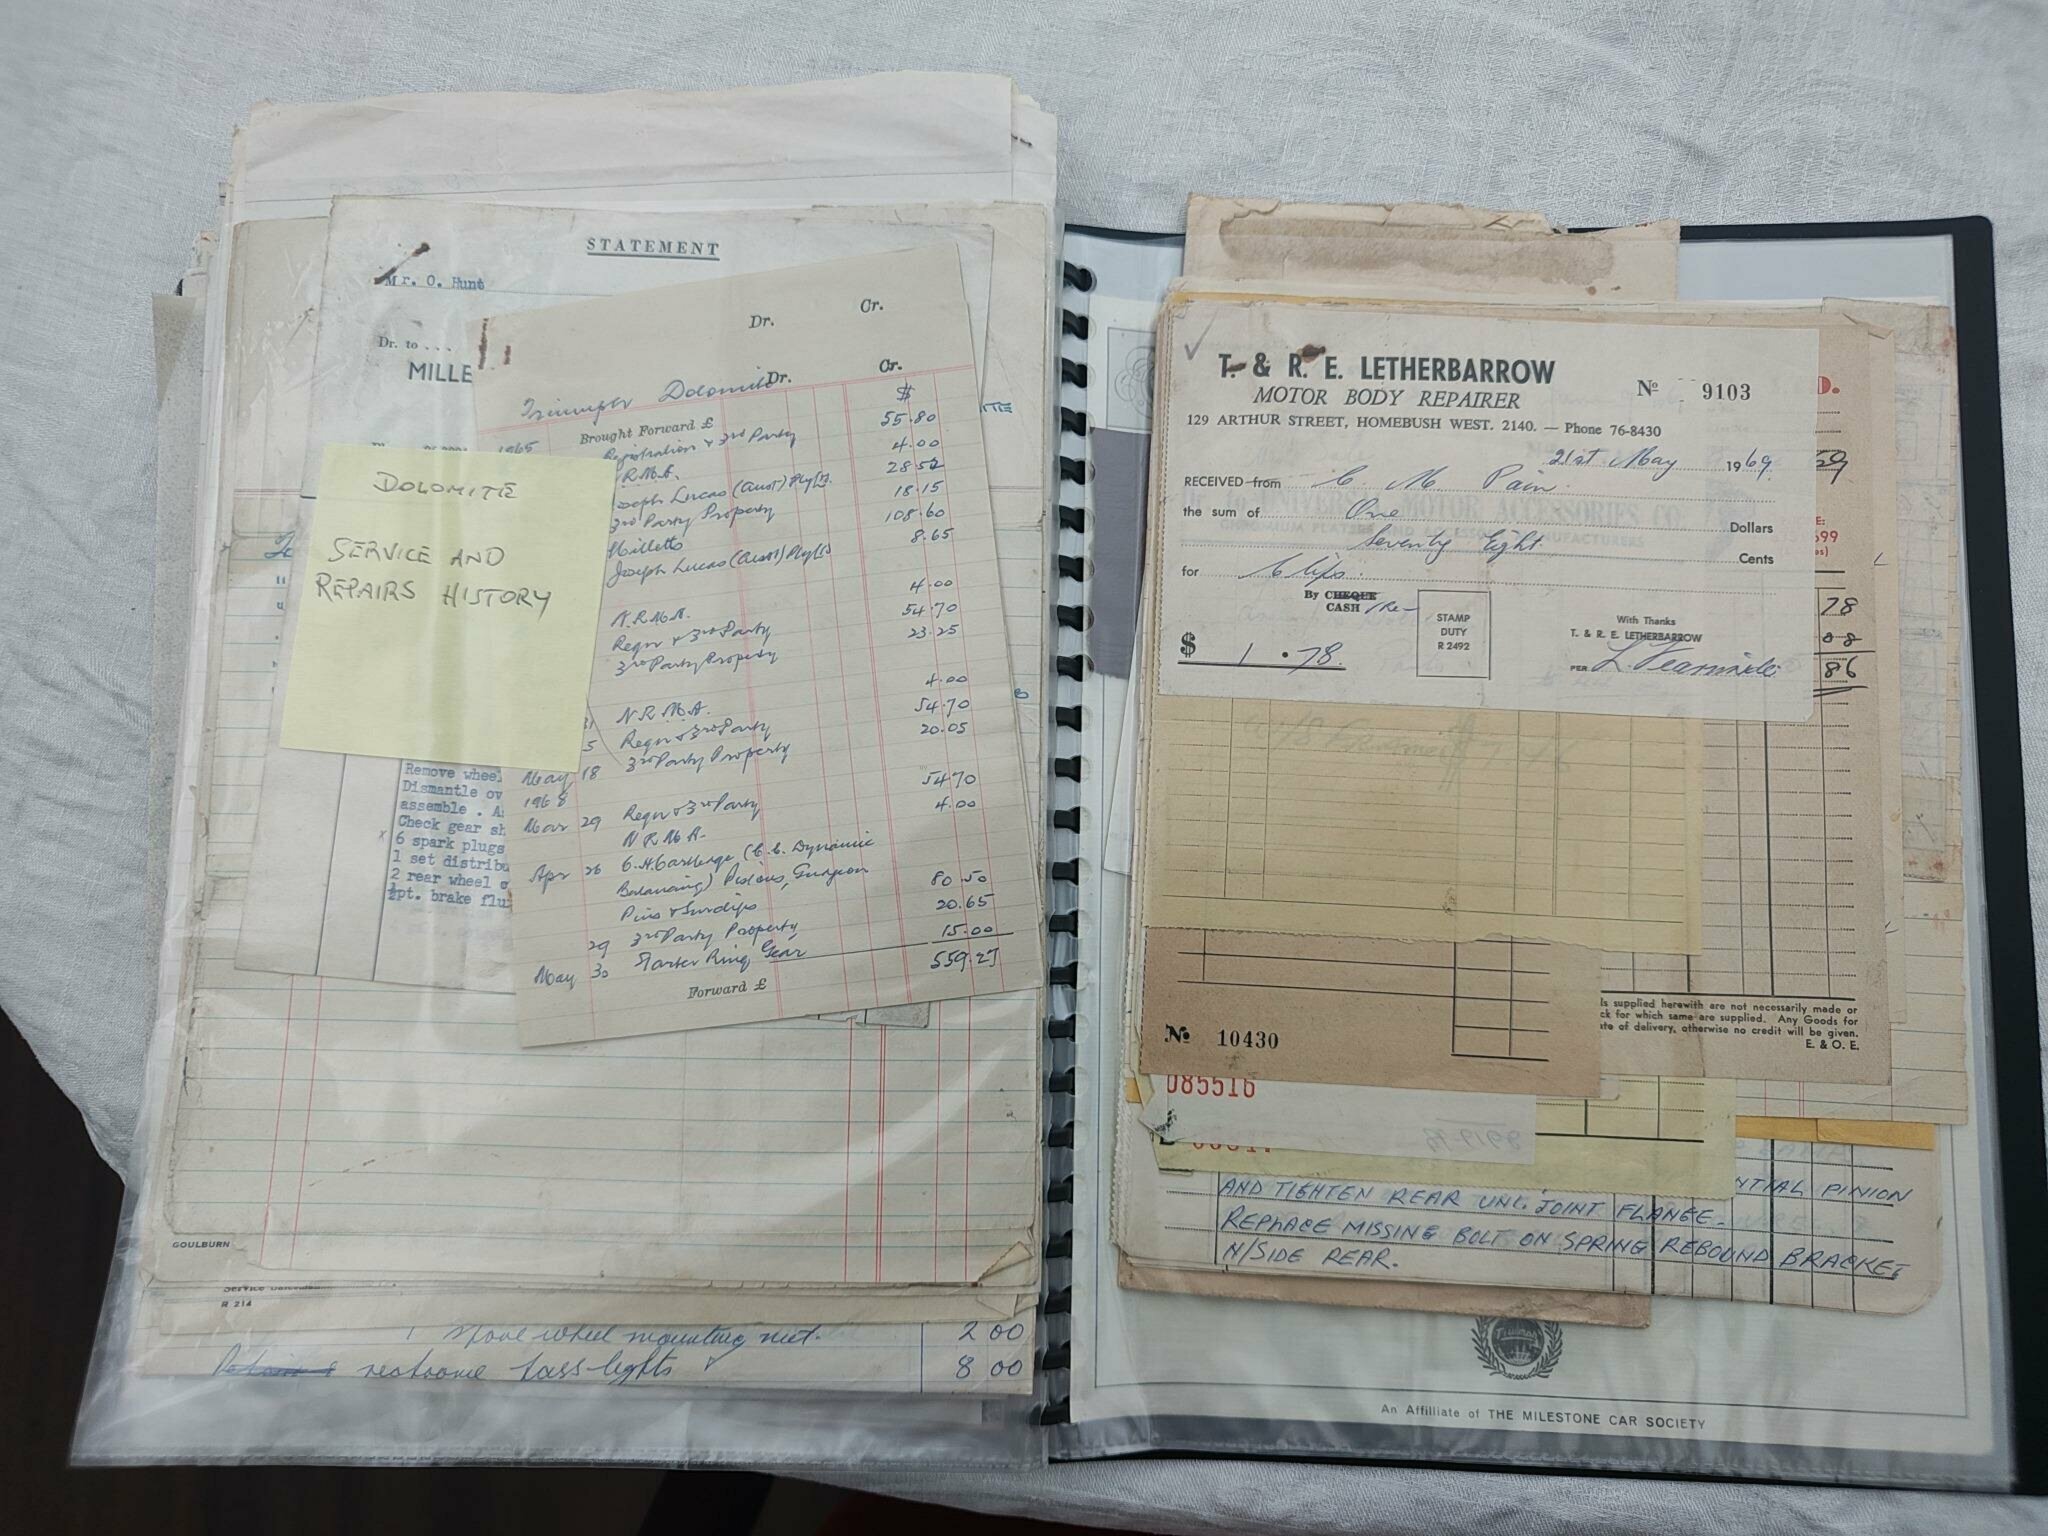 STATEMENT
Mr. O. Hunt
Dr. to . . .
MILLE
DOLOMITE
SERVICE AND
REPAIRS HISTORY
Remove wheel
Dismantle ov
assemble . As
Check gear sh
x 6 spark plugs
1 set distribu
2 rear wheel c
½pt. brake flu
Dr. Cr.
Triumph Dolomite Dr. Cr.
1965 Brought Forward £ $
Registration & 3rd Party 55.80
N.R.M.A. 4.00
Joseph Lucas (Aust) Pty Ltd. 28.52
3rd Party Property 18.15
Milletts 108.60
Joseph Lucas (Aust) Pty Ltd 8.65
N.R.M.A. 4.00
Regn & 3rd Party 54.70
3rd Party Property 23.25
31 N.R.M.A. 4.00
5 Regn & 3rd Party 54.70
May 18 3rd Party Property 20.05
1968
Mar 29 Regn & 3rd Party 54.70
N R M A. 4.00
Apr 26 (C.C. Dynamic
Balancing) Pistons, Gudgeon
Pins & Circlips 80.50
29 3rd Party Property 20.65
May 30 Starter Ring Gear 15.00
559.27
Forward £
GOULBURN
R 214
1 wheel mounting nut. 2 00
rechrome fass-lights 8 00
T. & R. E. LETHERBARROW
MOTOR BODY REPAIRER
No 9103
129 ARTHUR STREET, HOMEBUSH WEST. 2140. — Phone 76-8430
21st May 1969.
RECEIVED from C. M. Pain.
the sum of One Dollars
Seventy Eight Cents
for Clips.
By CHEQUE
CASH
STAMP
DUTY
R 2492
With Thanks
T. & R. E. LETHERBARROW
$ 1 . 78.
PER
D.
699
78
88
86
ls supplied herewith are not necessarily made or
ck for which same are supplied. Any Goods for
ate of delivery, otherwise no credit will be given.
E. & O. E.
No 10430
085516
NTIAL PINION
AND TIGHTEN REAR UNI. JOINT FLANGE.
REPLACE MISSING BOLT ON SPRING REBOUND BRACKET
N/SIDE REAR.
Triumph
An Affilliate of THE MILESTONE CAR SOCIETY